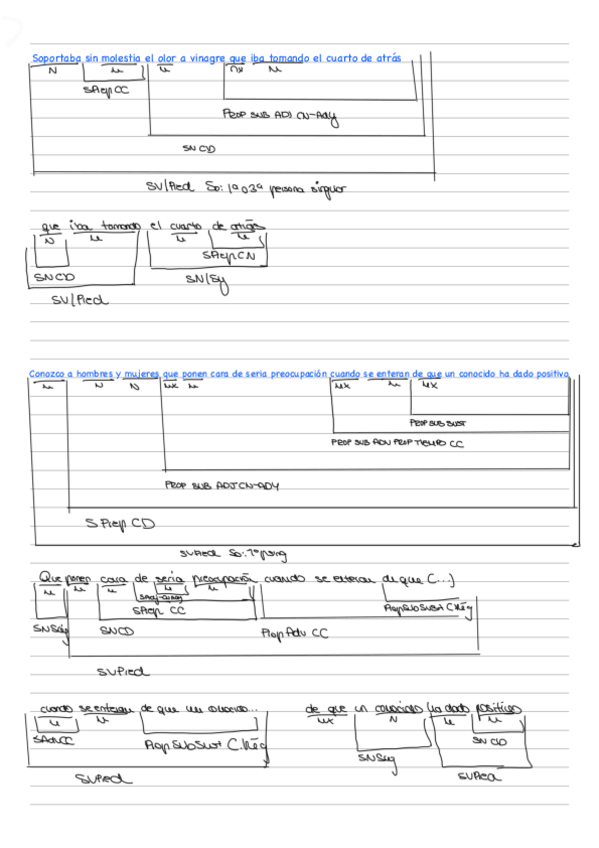 Soportaba sin molestia el olor a vinagre que iba tomando el cuarto de atrás
N N N nx N
SPrep CC
PROP SUB ADJ CN-Ady
SN CD
SV/Pred So: 1ª o 3ª persona singular
que iba tomando el cuarto de atrás
N N N N
SPrep CN
SN CD SN/Suj
SV/Pred
Conozco a hombres y mujeres que ponen cara de seria preocupación cuando se enteran de que un conocido ha dado positivo
N N N nx N nx N nx
PROP SUB SUST
PROP SUB ADV PROP TIEMPO CC
PROP SUB ADJ CN-ADY
S Prep CD
SV Pred So: 1ª p sing
Que ponen cara de seria preocupación cuando se enteran de que (...)
N N N N N
SPrep CC PropSubSust C.Rég
SN Suj SN CD Prop Adv CC
SV Pred
cuando se enteran de que un conocido... de que un conocido ha dado positivo
N N nx N N N
SAdv CC PropSubSust C.Rég SN CD
SN Suj
SV Pred SV Pred